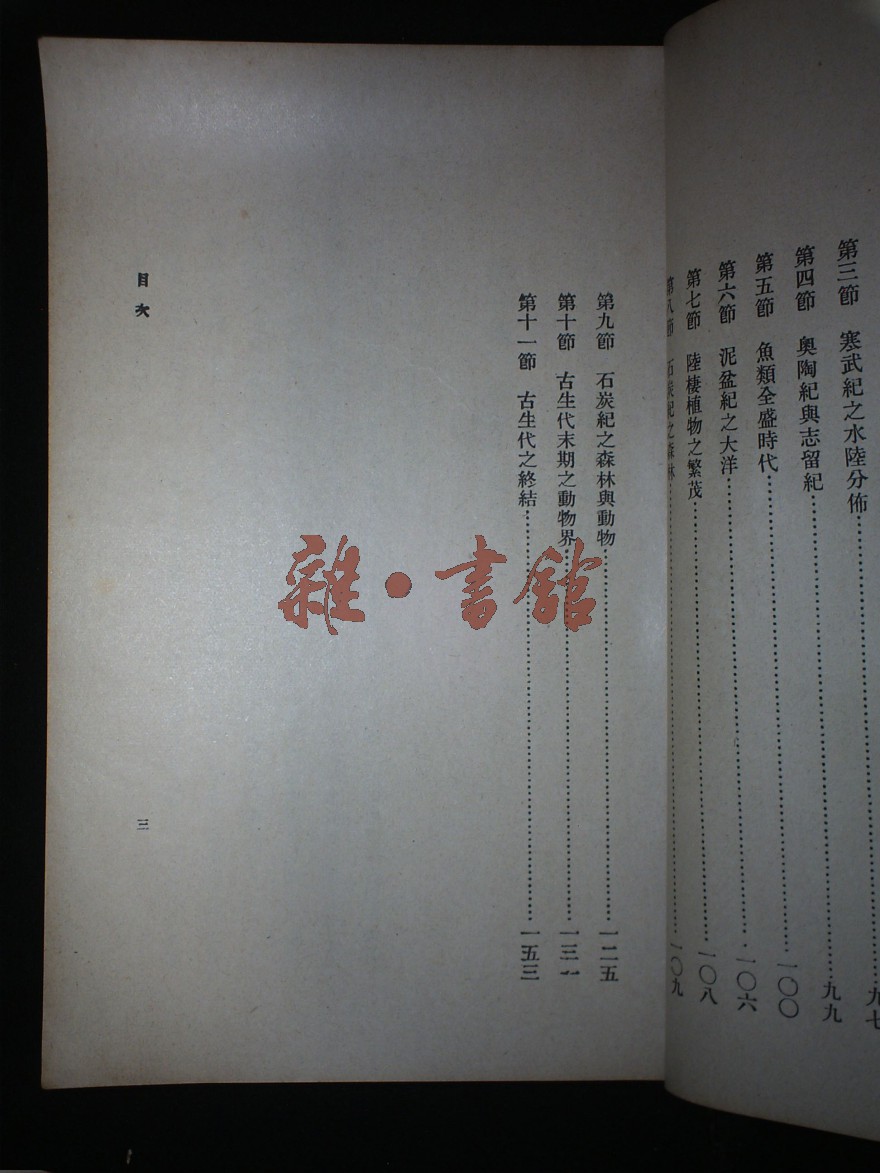 第三節　寒武紀之水陸分佈……九七
第四節　奧陶紀與志留紀……九九
第五節　魚類全盛時代……一〇〇
第六節　泥盆紀之大洋……一〇六
第七節　陸棲植物之繁茂……一〇八
第八節　石炭紀之森林……一〇九
第九節　石炭紀之森林與動物……一二五
第十節　古生代末期之動物界……
第十一節　古生代之終結……一五三
目次
三
雜・書館